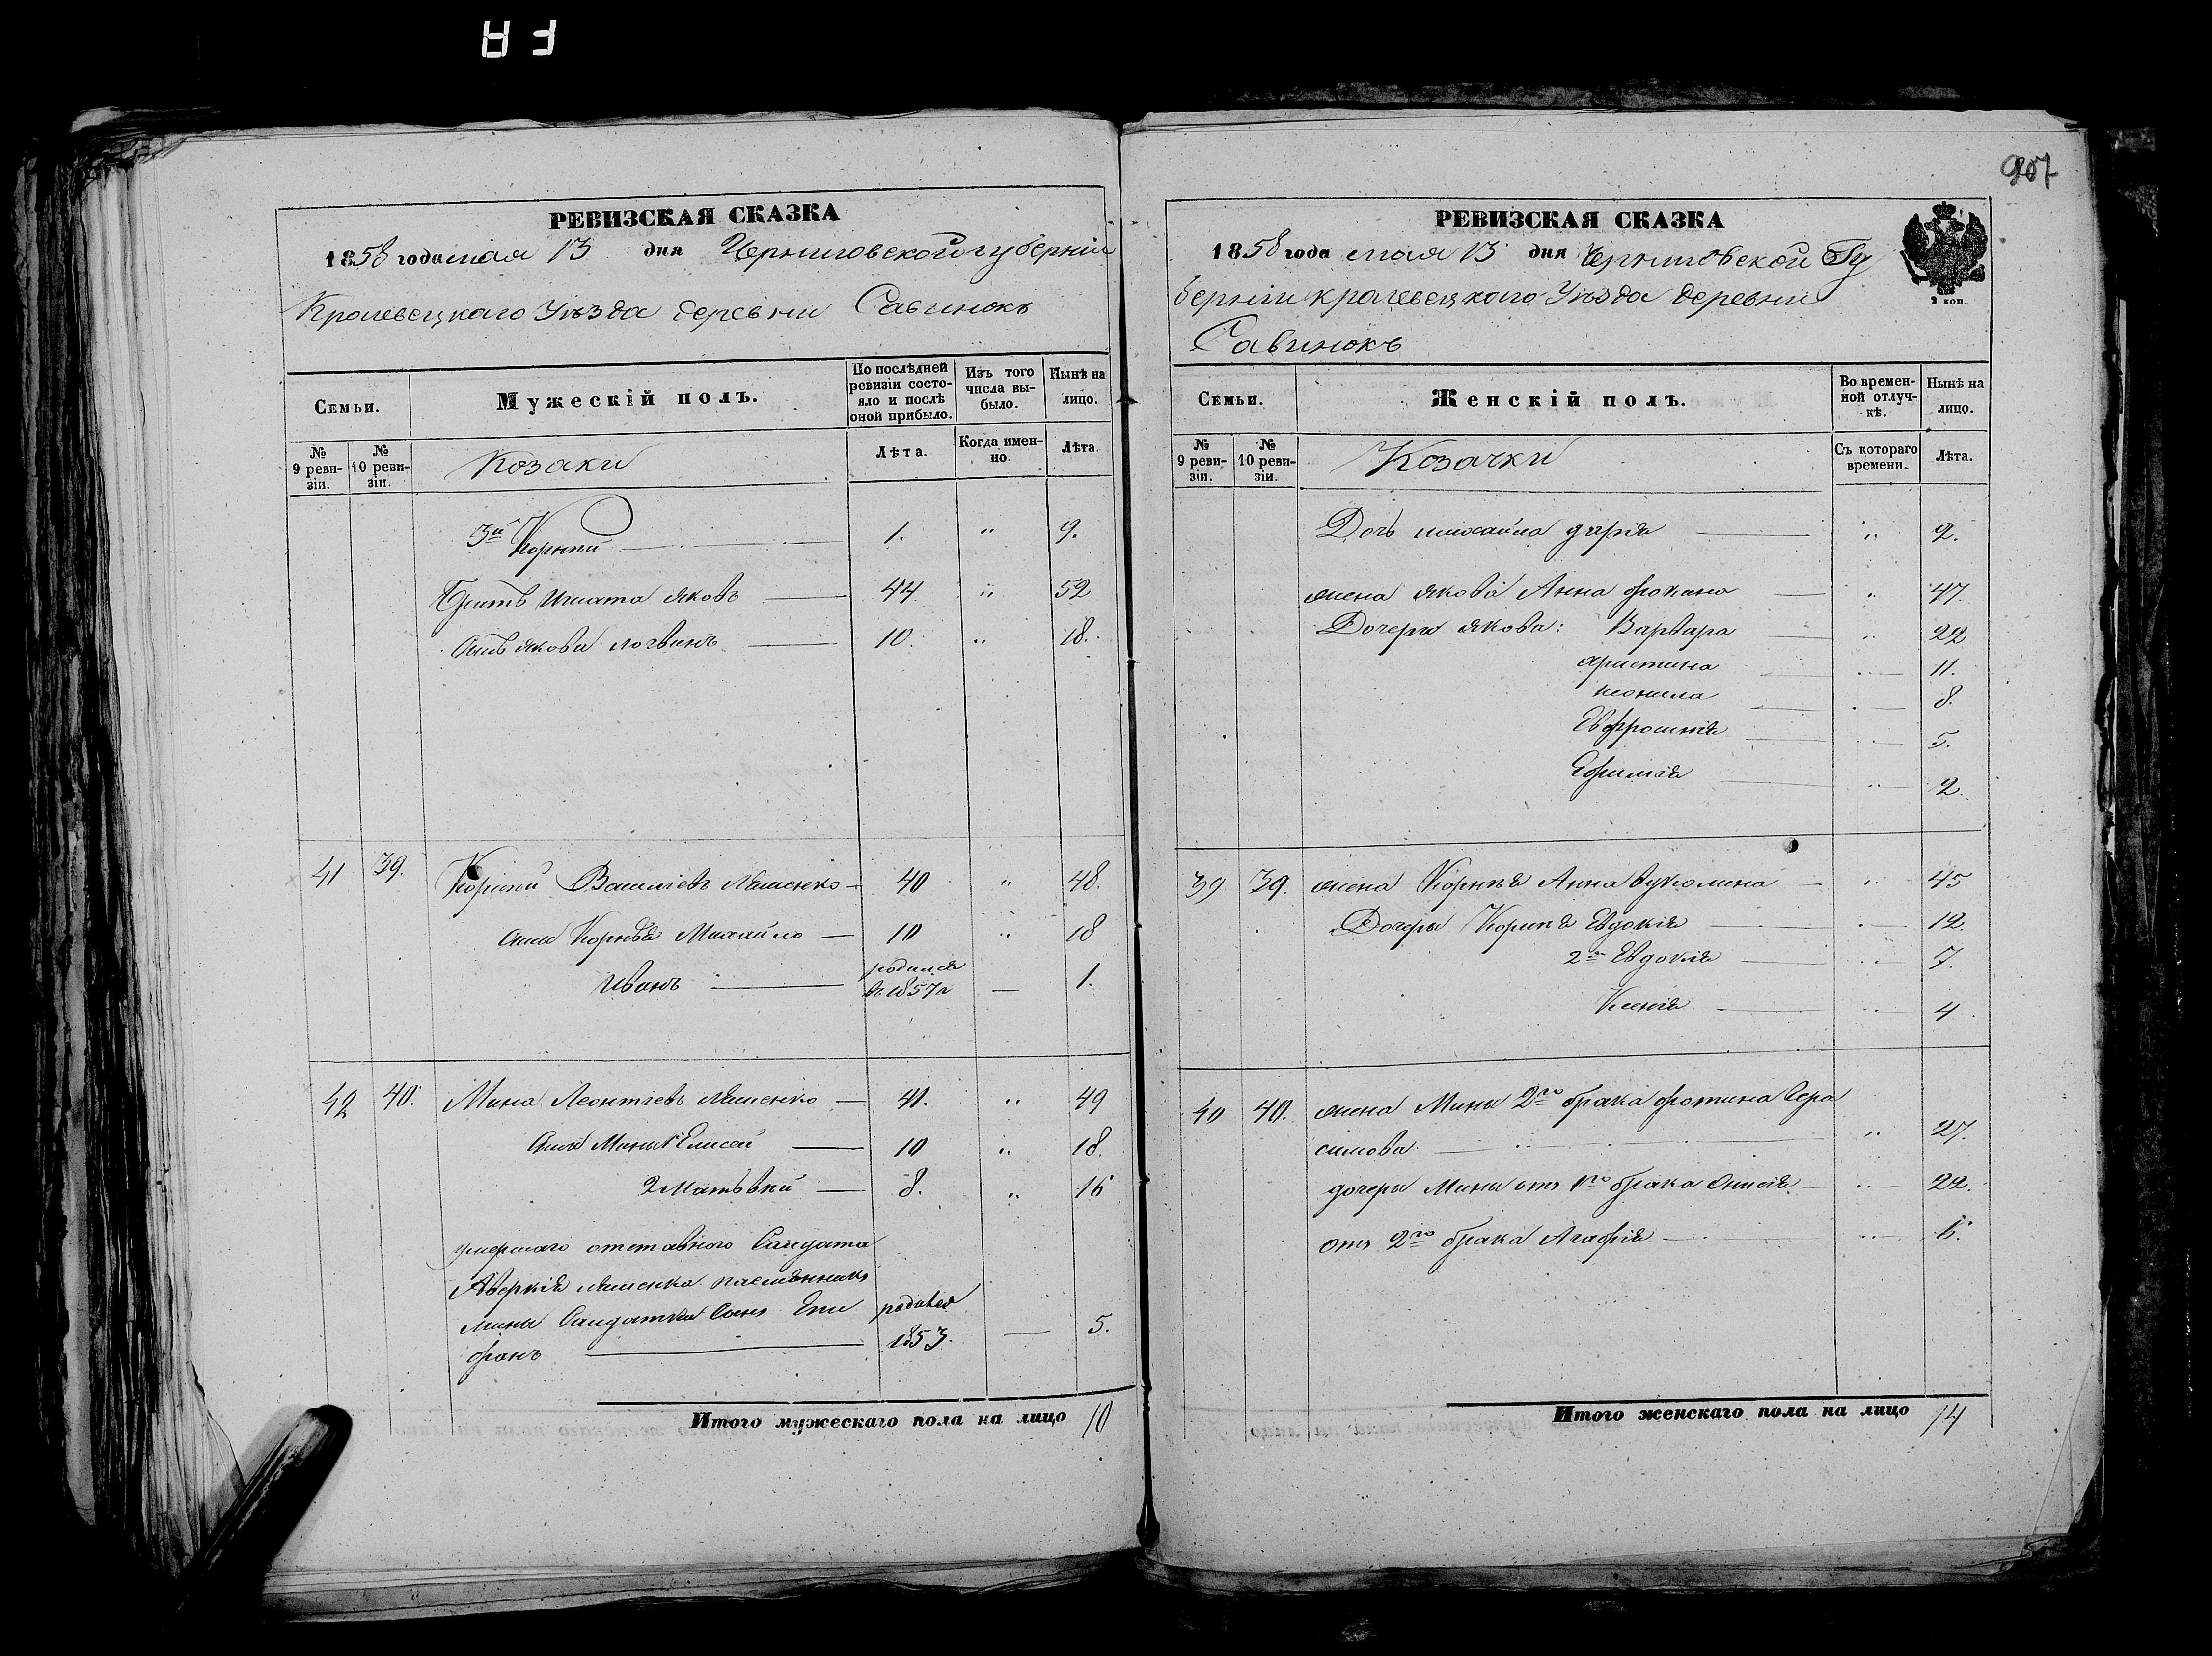 907
РЕВИЗСКАЯ СКАЗКА
1858 года мая 13 дня Черниговской губерніи
Кролевецкаго Уѣзда деревни Савинокъ
Семьи.
Мужескій полъ.
По послѣдней ревизіи состояло и послѣ оной прибыло.
Изъ того числа выбыло.
Нынѣ на лицо.
№ 9 ревизіи.
№ 10 ревизіи.
Козаки
Лѣта.
Когда именно.
Лѣта.
3й Корнпй 1. " 9.
Братъ Игната Яковъ 44 " 52
Сынъ Якова Логвинъ 10. " 18.
41 39. Корнпй Васильевъ Ляшенко 40 " 48.
Сынъ Корнѣя Михайло 10 " 18
Иванъ родился въ 1857 г — 1.
42 40. Мина Леонтіевъ Ляшенко 41. " 49
Сын Мины 1 Елисей 10 " 18.
2 Матвѣй 8. " 16
умершаго отставного Салдата
Аверкія Ляшенка племянника
мина Салдатки Сынъ Епи родился
фанъ 1853. — 5.
Итого мужескаго пола на лицо 10
РЕВИЗСКАЯ СКАЗКА
1858 года мая 13 дня Черниговской Гу
берніи кролевецкаго Уѣзда деревни
Савинокъ
2 коп.
Семьи.
Женскій полъ.
Во временной отлучкѣ.
Нынѣ на лицо.
№ 9 ревизіи.
№ 10 ревизіи.
Козачки
Съ котораго времени.
Лѣта.
Дочь михайла дарія " 2.
жена якова Анна фокина " 47.
Дочери якова: Варвара " 22
христина " 11.
неонила " 8.
Евфросинія " 5.
Ефимія " 2.
39 39. жена Корнѣя Анна " 45
Дочери Корнѣя Евдокія " 12.
2я Евдокія " 7.
Ксенія " 4
40 40. жена Мины 2го брака фотина Гера
симова " 27.
дочери Мины отъ 1го брака Анисія " 22.
отъ 2го брака Агафія "
Итого женскаго пола на лицо 14